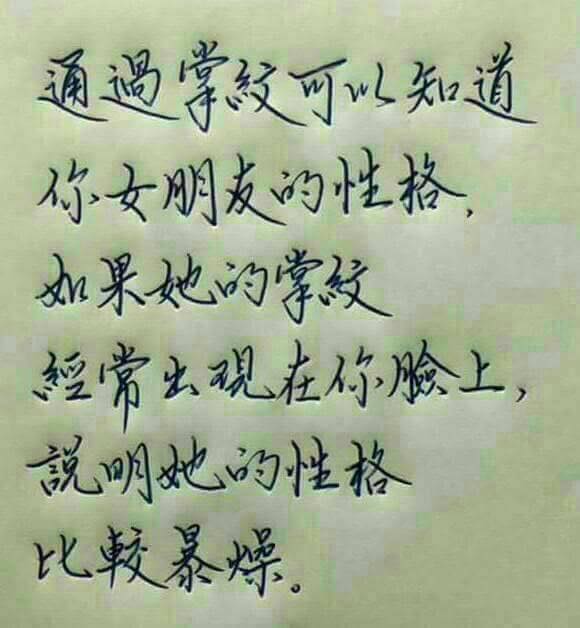 通過掌紋可以知道
你女朋友的性格，
如果她的掌紋
經常出現在你臉上，
說明她的性格
比較暴燥。